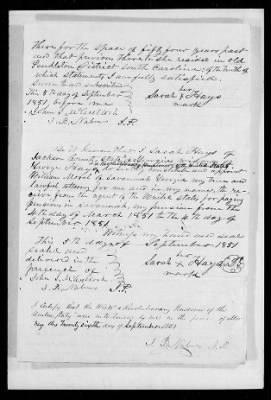 there for the space of fifty four years past
and that previous thereto she resided in old
Pendleton District South Carolina; of the truth of
which statements I am fully satisfied.
Sworn to and subscribed
This 5th day of September
1851, before me
her
Sarah X Hays
mark
John J. McCulloch
J. B. Nabers J.P.
Be it known that I Sarah Hays of
Jackson County State of Georgia widow of
George Hays a Revolutionary pensioner of the United States
do hereby constitute and appoint
William Morel of Savannah Georgia my true and
lawful attorney for me and in my name, to re-
ceive from the agent of the United States for paying
pensions in Savannah Georgia my pension from the
4th day of March 1851 to the 4th day of
September 1851.
Witness my hand and seal
This 5th day of September 1851
Sealed and
delivered in the
presence of
her
Sarah X Hays
mark
John J. McCulloch
J. B. Nabers J.P.
I Certify that the
Revolutionary Pensioner of the
United States
This Twenty Sixth day of September 1851
J. B. Nabers J.P.